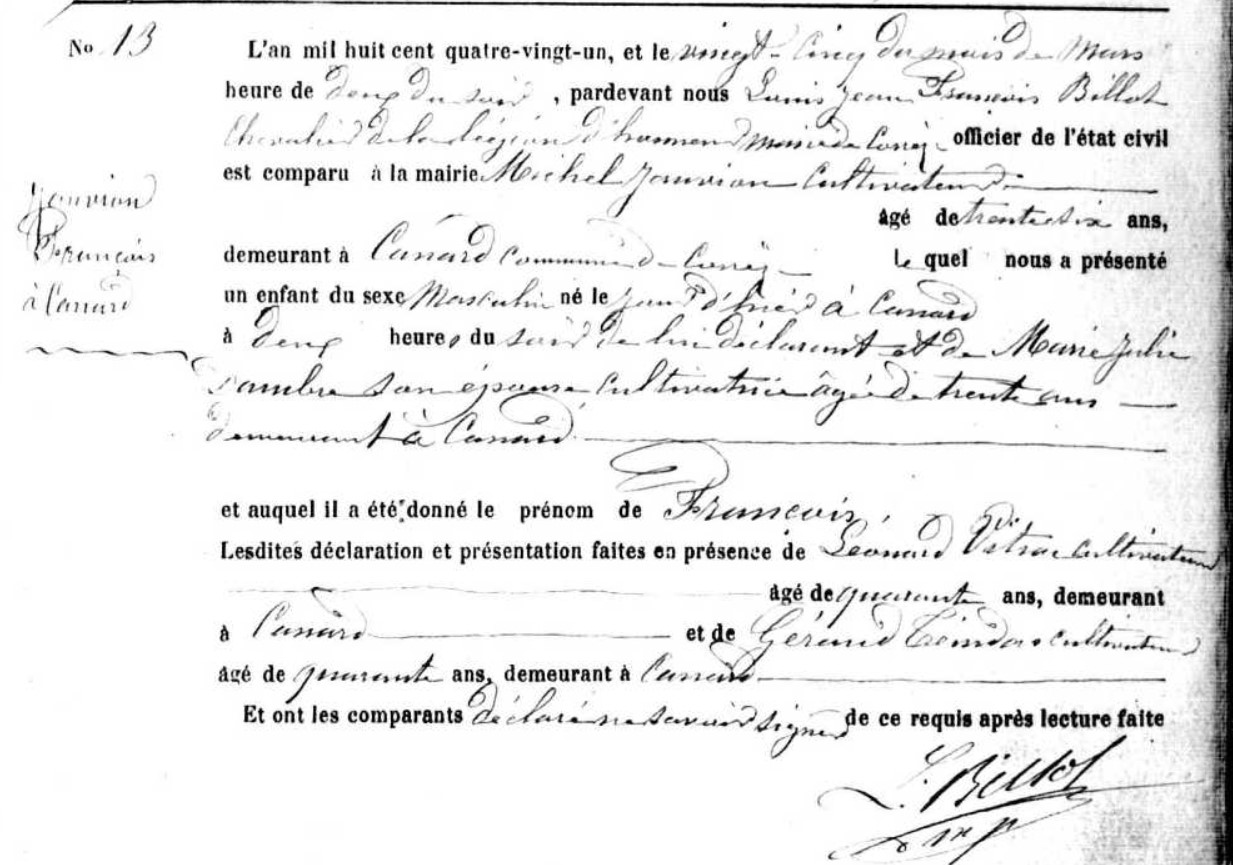 No 13
L'an mil huit cent quatre-vingt-un, et le vingt-cinq du mois de Mars
heure de deux du soir, pardevant nous Louis Jean François Billot
Chevalier de la Légion d'honneur maire de officier de l'état civil
est comparu à la mairie Michel Jouvion Cultivateur
âgé de trente six ans,
Jouvion
François
à Canard
demeurant à Canard commune de lequel nous a présenté
un enfant du sexe Masculin né le jour d'hier à Canard
à deux heures du soir de lui déclarant et de Marie Julie
son épouse cultivatrice âgée de trente ans
demeurant à Canard
et auquel il a été donné le prénom de François.
Lesdites déclaration et présentation faites en présence de Léonard Vitrac cultivateur
âgé de quarante ans, demeurant
à Canard et de Gérand cultivateur
âgé de quarante ans, demeurant à Canard
Et ont les comparants déclaré ne savoir signer de ce requis après lecture faite
L. Billot